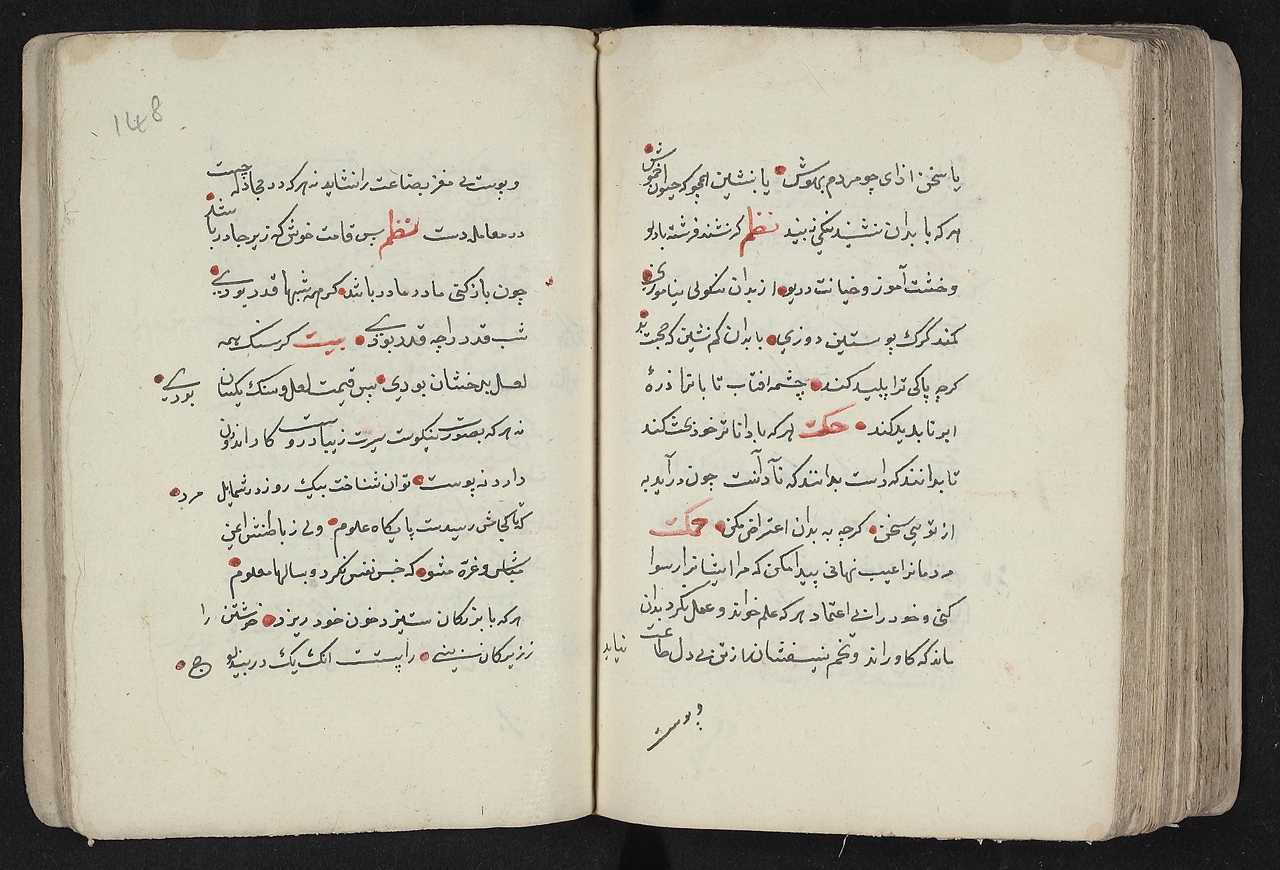 یا سخن ازای چو مردم بهوش • یا بنشین همچو که حیوان خموش •
هر که با بدان نشیند نیکی نه بیند نظم کر نشند فرشته با دلو
وخشت آموز و خیانت و ریو • از بدان نیکوئی نیاموزی •
کمند کرک پوستین دوزی • با بدان کم نشین که صحبت بد •
کرچه پاکی ترا پلید کند • چشمه افتاب تابانرا ذرهٔ
ابر ناپدید کند • حکمت هر که با داناتر خود بحث کند
تا بدانند که داست بدانند که نادانست چون در آید به
از توئی سخن • کرچه به بدان اعتراض مکن • حکمت
مردمانرا عیب نهانی پیدا مکن که مر ایشانرا رسوا
کنی و خود را بی اعتماد هر که علم خواند و عمل نکرد بدان
ماند که کاو راند و تخم نیفشاند از تن بی دل طاعت نیاید
و پوست
148
و پوست بی مغز بضاعت را نشاید نه هر که در مجادله چست
در معامله دست نظم بس قامت خوش که زیر چادر باشد •
چون باز کنی مادر مادر باشد • کر همه شبها قدر بودی •
شب قدر را چه قدر بودی • بیت کر سنک همه
لعل بدخشان بودی • پس قیمت لعل و سنک یکسان بودی •
نه هر که بصورت نیکوست سیرت زیبا دروست کار اندرون
دارد نه پوست • توان شناخت بیک روز در شمایل مرد •
که تا کجاش رسیدست پایکاه علوم • ولی ز باطنش ایمن
مباش و غره مشو • که خبث نفس نکردد بسالها معلوم •
هر که با بزرکان ستیزد خون خود ریزد • خویشتن را
بزرک کان زینی • راست کفتند یک دو بیند لوچ •